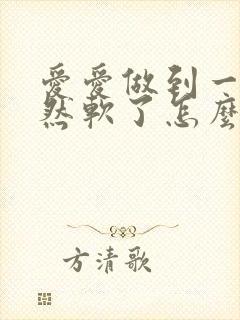 愛愛做到一
然軟了怎麼
方清歌